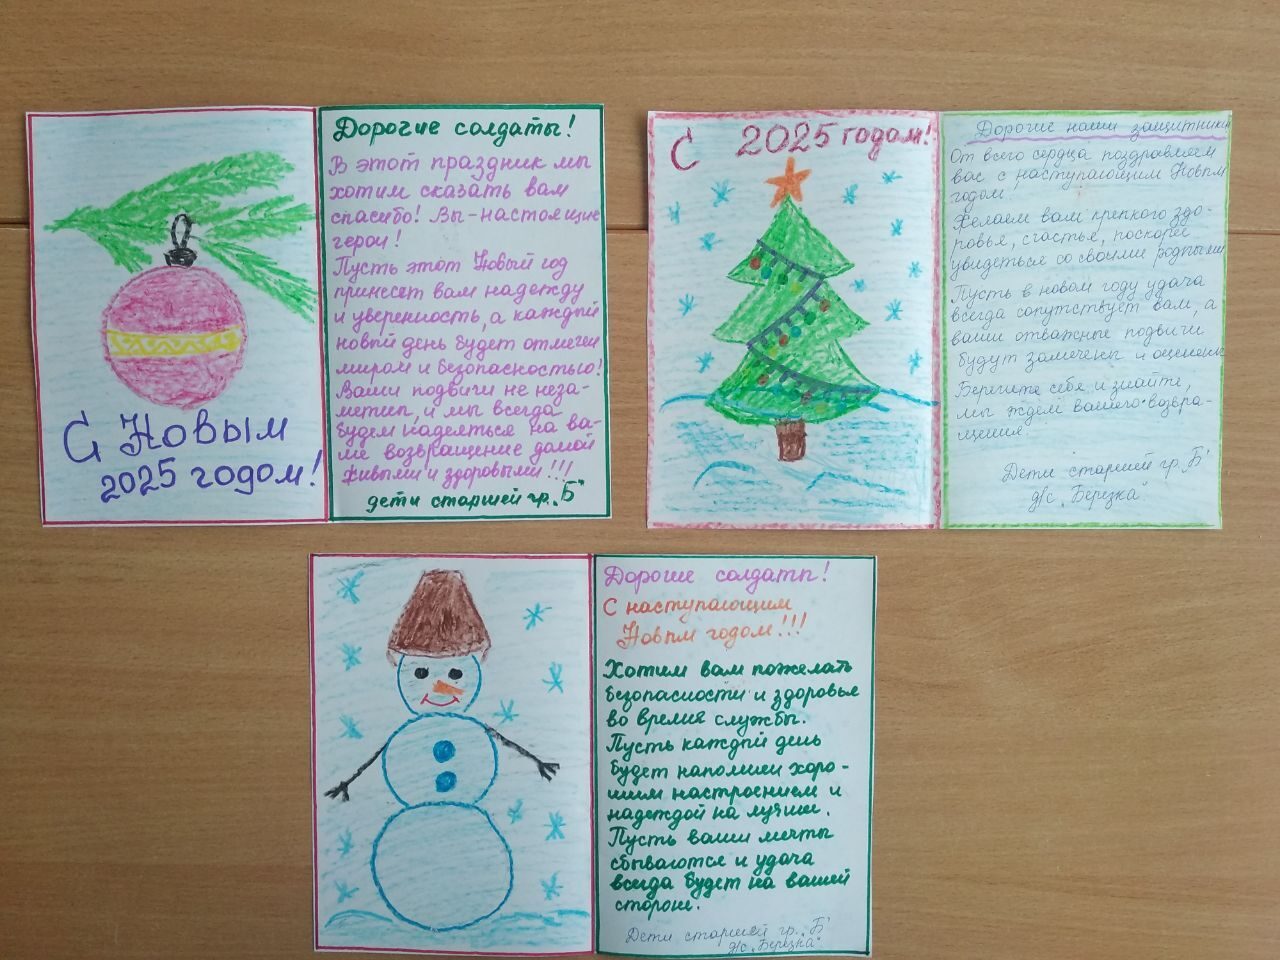 С Новым
2025 годом!
Дорогие солдаты!
В этот праздник мы
хотим сказать вам
спасибо! Вы-настоящие
герои!
Пусть этот Новый год
принесет вам надежду
и уверенность, а каждый
новый день будет отмечен
миром и безопасностью!
Ваши подвиги не неза-
метны, и мы всегда
будем надеяться на ва-
ше возвращение домой
живыми и здоровыми!!!
дети старшей гр. „Б"
С 2025 годом!
Дорогие наши защитники
От всего сердца поздравляем
вас с наступающим Новым
годом.
Желаем вам крепкого здо-
ровья, счастья, поскорее
увидеться со своими родными
Пусть в новом году удача
всегда сопутствует вам, а
ваши отважные подвиги
будут замечены и оценены
Берегите себя и знайте,
мы ждем вашего возвра-
щения.
Дети старшей гр. „Б"
д/с „Березка"
Дорогие солдаты!
С наступающим
Новым годом!!!
Хотим вам пожелать
безопасности и здоровья
во время службы.
Пусть каждый день
будет наполнен хоро-
шим настроением и
надеждой на лучшее.
Пусть ваши мечты
сбываются и удача
всегда будет на вашей
стороне.
Дети старшей гр. „Б"
д/с „Березка"